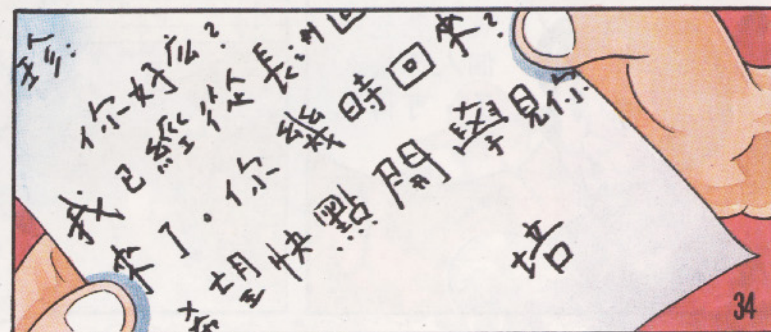 珍:
你好么?
我已經從長洲回
來了。你幾時回來?
希望快點開學見你
培
34